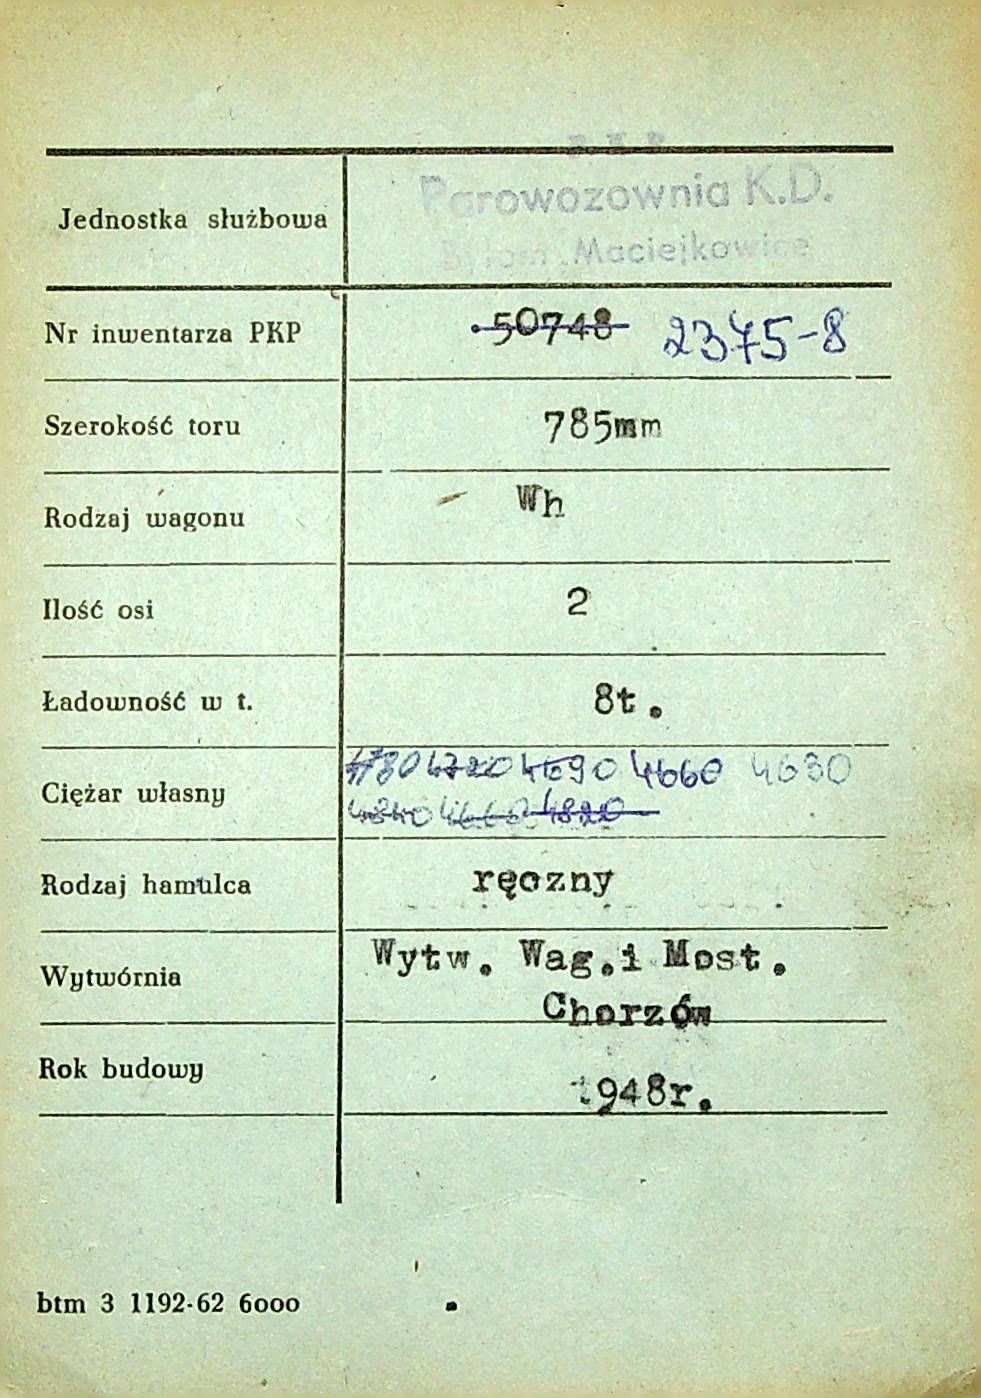 P.K.P.
Parowozownia K.D.
Bytom Maciejkowice
Jednostka służbowa
Nr inwentarza PKP 50748 2375-8
Szerokość toru 785mm
Rodzaj wagonu Wh
Ilość osi 2
Ładowność w t. 8t.
4780 4720 4690 4660 4630
Ciężar własny
4840 4660 4820
Rodzaj hamulca ręczny
Wytw. Wag.i Most.
Wytwórnia
Chorzów
Rok budowy 1948r.
btm 3 1192-62 6000